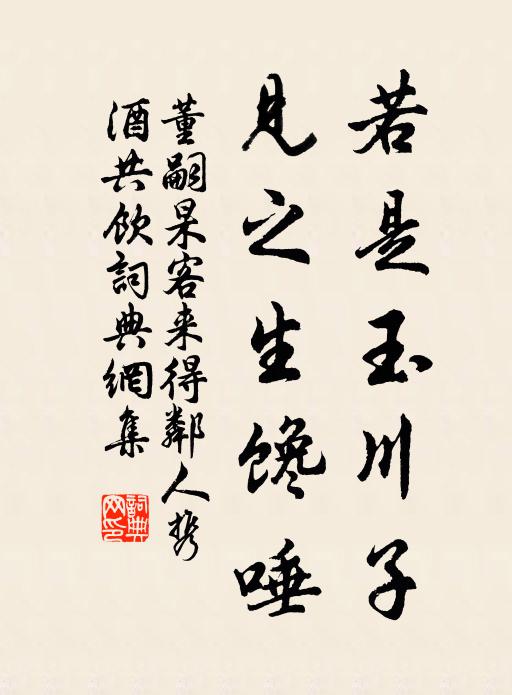 若是玉川子
见之生馋唾
董嗣杲客来得鄰人携
酒共饮詞典網集
詞典网印